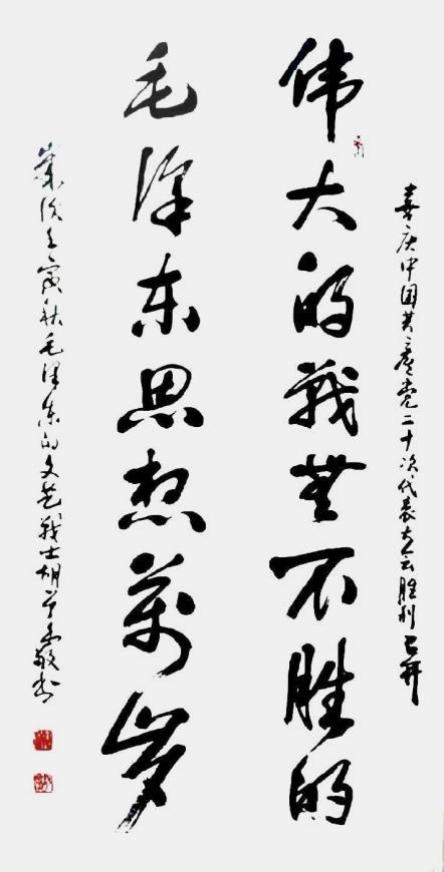 喜庆中国共產党二十次代表大会胜利召开
伟大的戰無不胜的
毛泽东思想萬岁
岁次壬寅秋毛泽东的文艺战士胡敬书